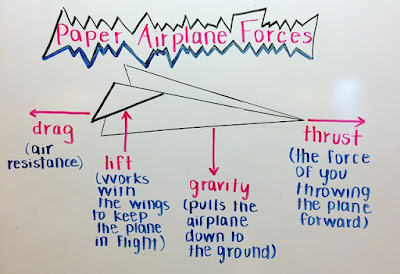 Paper Airplane Forces
drag
(air
resistance)
lift
(works
with
the wings
to keep
the plane
in flight)
gravity
(pulls the
airplane
down to
the ground)
thrust
(the force
of you
throwing
the plane
forward)